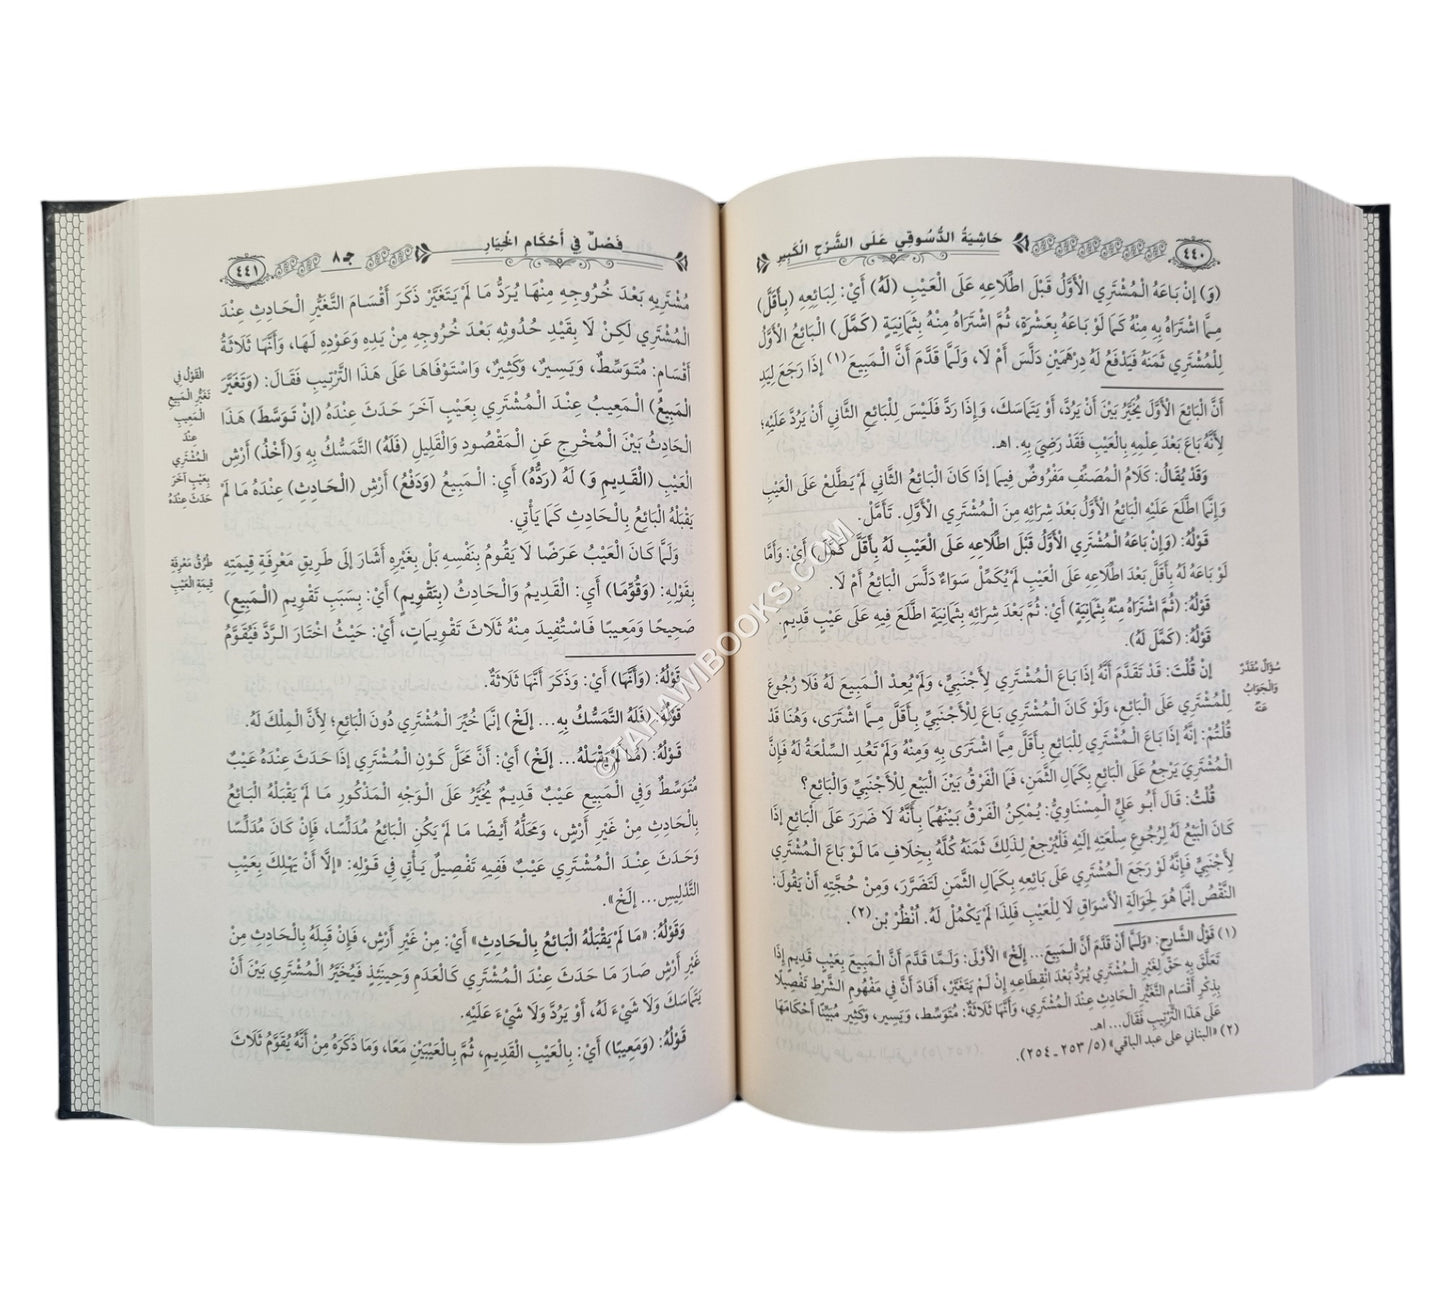 ٤٤٠
حَاشِيَةُ الدُّسُوقِي عَلَى الشَّرْحِ الْكَبِيرِ
(وَ) إِنْ بَاعَهُ الْمُشْتَرِي الأَوَّلُ قَبْلَ اطِّلَاعِهِ عَلَى الْعَيْبِ (لَهُ) أَيْ: لِبَائِعِهِ (بِأَقَلَّ)
مِمَّا اشْتَرَاهُ بِهِ مِنْهُ كَمَا لَوْ بَاعَهُ بِعَشْرَةٍ، ثُمَّ اشْتَرَاهُ مِنْهُ بِثَمَانِيَةٍ (كَمَّلَ) الْبَائِعُ الأَوَّلُ
لِلْمُشْتَرِي ثَمَنَهُ فَيَدْفَعُ لَهُ دِرْهَمَيْنِ دَلَّسَ أَمْ لَا، وَلَمَّا قَدَّمَ أَنَّ الْمَبِيعَ (١) إِذَا رَجَعَ لِيَدِ
أَنَّ الْبَائِعَ الأَوَّلَ يُخَيَّرُ بَيْنَ أَنْ يَرُدَّ، أَوْ يَتَمَاسَكَ، وَإِذَا رَدَّ فَلَيْسَ لِلْبَائِعِ الثَّانِي أَنْ يَرُدَّ عَلَيْهِ؛
لِأَنَّهُ بَاعَ بَعْدَ عِلْمِهِ بِالْعَيْبِ فَقَدْ رَضِيَ بِهِ. اهـ
وَقَدْ يُقَالُ: كَلَامُ الْمُصَنِّفِ مَفْرُوضٌ فِيمَا إِذَا كَانَ الْبَائِعُ الثَّانِي لَمْ يَطَّلِعْ عَلَى الْعَيْبِ
وَإِنَّمَا اطَّلَعَ عَلَيْهِ الْبَائِعُ الأَوَّلُ بَعْدَ شِرَائِهِ مِنَ الْمُشْتَرِي الأَوَّلِ. تَأَمَّلْ.
قَوْلُهُ: (وَإِنْ بَاعَهُ الْمُشْتَرِي الأَوَّلُ قَبْلَ اطِّلَاعِهِ عَلَى الْعَيْبِ لَهُ بِأَقَلَّ كَمَّلَ) أَيْ: وَأَمَّا
لَوْ بَاعَهُ لَهُ بِأَقَلَّ بَعْدَ اطِّلَاعِهِ عَلَى الْعَيْبِ لَمْ يُكَمِّلْ سَوَاءٌ دَلَّسَ الْبَائِعُ أَمْ لَا.
قَوْلُهُ: (ثُمَّ اشْتَرَاهُ مِنْهُ بِثَمَانِيَةٍ) أَيْ: ثُمَّ بَعْدَ شِرَائِهِ بِثَمَانِيَةٍ اطَّلَعَ فِيهِ عَلَى عَيْبٍ قَدِيمٍ.
قَوْلُهُ: (كَمَّلَ لَهُ).
سُؤَالٌ مُقَدَّرٌ
وَالْجَوَابُ
عَنْهُ
إِنْ قُلْتَ: قَدْ تَقَدَّمَ أَنَّهُ إِذَا بَاعَ الْمُشْتَرِي لِأَجْنَبِيٍّ، وَلَمْ يُعِدْ الْمَبِيعَ لَهُ فَلَا رُجُوعَ
لِلْمُشْتَرِي عَلَى الْبَائِعِ، وَلَوْ كَانَ الْمُشْتَرِي بَاعَ لِلْأَجْنَبِيِّ بِأَقَلَّ مِمَّا اشْتَرَى، وَهُنَا قَدْ
قُلْتُمْ: إِنَّهُ إِذَا بَاعَ الْمُشْتَرِي لِلْبَائِعِ بِأَقَلَّ مِمَّا اشْتَرَى بِهِ وَمِنْهُ وَلَمْ تَعُدِ السِّلْعَةُ لَهُ فَإِنَّ
الْمُشْتَرِيَ يَرْجِعُ عَلَى الْبَائِعِ بِكَمَالِ الثَّمَنِ، فَمَا الْفَرْقُ بَيْنَ الْبَيْعِ لِلْأَجْنَبِيِّ وَالْبَائِعِ؟
قُلْتُ: قَالَ أَبُو عَلِيٍّ الْمِسْنَاوِيُّ: يُمْكِنُ الْفَرْقُ بَيْنَهُمَا بِأَنَّهُ لَا ضَرَرَ عَلَى الْبَائِعِ إِذَا
كَانَ الْبَيْعُ لَهُ لِرُجُوعِ سِلْعَتِهِ إِلَيْهِ فَلْيُرْجِعْ لِذَلِكَ ثَمَنَهُ كُلَّهُ بِخِلَافِ مَا لَوْ بَاعَ الْمُشْتَرِي
لِأَجْنَبِيٍّ فَإِنَّهُ لَوْ رَجَعَ الْمُشْتَرِي عَلَى بَائِعِهِ بِكَمَالِ الثَّمَنِ لَتَضَرَّرَ، وَمِنْ حُجَّتِهِ أَنْ يَقُولَ:
النَّقْصُ إِنَّمَا هُوَ لِحَوَالَةِ الأَسْوَاقِ لَا لِلْعَيْبِ فَلِذَا لَمْ يَكْمُلْ لَهُ. اُنْظُرْ بْن (٢).
(١) قَوْلُ الشَّارِحِ: «وَلَمَّا أَنْ قَدَّمَ أَنَّ الْمَبِيعَ... إِلَخْ» الأَوْلَى: وَلَمَّا قَدَّمَ أَنَّ الْمَبِيعَ بِعَيْبٍ قَدِيمٍ إِذَا
تَعَلَّقَ بِهِ حَقٌّ لِغَيْرِ الْمُشْتَرِي يُرَدُّ بَعْدَ انْقِطَاعِهِ إِنْ لَمْ يَتَغَيَّرْ، أَفَادَ أَنَّ فِي مَفْهُومِ الشَّرْطِ تَفْصِيلًا
بِذِكْرِ أَقْسَامِ التَّغَيُّرِ الْحَادِثِ عِنْدَ الْمُشْتَرِي، وَأَنَّهَا ثَلَاثَةٌ: مُتَوَسِّط، وَيَسِير، وَكَثِير مُبَيِّنًا أَحْكَامَهَا
عَلَى هَذَا التَّرْتِيبِ فَقَالَ... اهـ
(٢) «البناني على عبد الباقي» (٥/ ٢٥٣ ـ ٢٥٤).
فَصْلٌ فِي أَحْكَامِ الْخِيَارِ
جـ ٨
٤٤١
مُشْتَرِيهِ بَعْدَ خُرُوجِهِ مِنْهَا يُرَدُّ مَا لَمْ يَتَغَيَّرْ ذَكَرَ أَقْسَامَ التَّغَيُّرِ الْحَادِثِ عِنْدَ
الْمُشْتَرِي لَكِنْ لَا بِقَيْدِ حُدُوثِهِ بَعْدَ خُرُوجِهِ مِنْ يَدِهِ وَعَوْدِهِ لَهَا، وَأَنَّهَا ثَلَاثَةُ
أَقْسَامٍ: مُتَوَسِّطٌ، وَيَسِيرٌ، وَكَثِيرٌ، وَاسْتَوْفَاهَا عَلَى هَذَا التَّرْتِيبِ فَقَالَ: (وَتَغَيَّرَ
الْمَبِيعُ) الْمَعِيبُ عِنْدَ الْمُشْتَرِي بِعَيْبٍ آخَرَ حَدَثَ عِنْدَهُ (إِنْ تَوَسَّطَ) هَذَا
الْحَادِثُ بَيْنَ الْمُخْرِجِ عَنِ الْمَقْصُودِ وَالْقَلِيلِ (فَلَهُ) التَّمَسُّكُ بِهِ وَ(أَخْذُ) أَرْشِ
الْعَيْبِ (الْقَدِيمِ وَ) لَهُ (رَدُّهُ) أَيْ: الْمَبِيعُ (وَدَفْعُ) أَرْشِ (الْحَادِثِ) عِنْدَهُ مَا لَمْ
يَقْبَلْهُ الْبَائِعُ بِالْحَادِثِ كَمَا يَأْتِي.
الْقَوْلُ فِي
تَغَيُّرِ الْمَبِيعِ
الْمَعِيبِ
عِنْدَ
الْمُشْتَرِي
بِعَيْبٍ آخَرَ
حَدَثَ عِنْدَهُ
وَلَمَّا كَانَ الْعَيْبُ عَرَضًا لَا يَقُومُ بِنَفْسِهِ بَلْ بِغَيْرِهِ أَشَارَ إِلَى طَرِيقِ مَعْرِفَةِ قِيمَتِهِ
بِقَوْلِهِ: (وَقُوِّمَا) أَيْ: الْقَدِيمُ وَالْحَادِثُ (بِتَقْوِيمِ) أَيْ: بِسَبَبِ تَقْوِيمِ (الْمَبِيعِ)
صَحِيحًا وَمَعِيبًا فَاسْتُفِيدَ مِنْهُ ثَلَاثُ تَقْوِيمَاتٍ، أَيْ: حَيْثُ اخْتَارَ الرَّدَّ فَيُقَوَّمُ
طُرُقُ مَعْرِفَةِ
قِيمَةِ الْعَيْبِ
قَوْلُهُ: (وَأَنَّهَا) أَيْ: وَذَكَرَ أَنَّهَا ثَلَاثَةٌ.
قَوْلُهُ: (فَلَهُ التَّمَسُّكُ بِهِ... إِلَخْ) إِنَّمَا خُيِّرَ الْمُشْتَرِي دُونَ الْبَائِعِ؛ لِأَنَّ الْمِلْكَ لَهُ.
قَوْلُهُ: (مَا لَمْ يَقْبَلْهُ... إِلَخْ) أَيْ: أَنَّ مَحَلَّ كَوْنِ الْمُشْتَرِي إِذَا حَدَثَ عِنْدَهُ عَيْبٌ
مُتَوَسِّطٌ وَفِي الْمَبِيعِ عَيْبٌ قَدِيمٌ يُخَيَّرُ عَلَى الْوَجْهِ الْمَذْكُورِ مَا لَمْ يَقْبَلْهُ الْبَائِعُ
بِالْحَادِثِ مِنْ غَيْرِ أَرْشٍ، وَمَحَلُّهُ أَيْضًا مَا لَمْ يَكُنِ الْبَائِعُ مُدَلِّسًا، فَإِنْ كَانَ مُدَلِّسًا
وَحَدَثَ عِنْدَ الْمُشْتَرِي عَيْبٌ فَفِيهِ تَفْصِيلٌ يَأْتِي فِي قَوْلِهِ: «إِلَّا أَنْ يَهْلِكَ بِعَيْبِ
التَّدْلِيسِ... إِلَخْ».
وَقَوْلُهُ: «مَا لَمْ يَقْبَلْهُ الْبَائِعُ بِالْحَادِثِ» أَيْ: مِنْ غَيْرِ أَرْشٍ، فَإِنْ قَبِلَهُ بِالْحَادِثِ مِنْ
غَيْرِ أَرْشٍ صَارَ مَا حَدَثَ عِنْدَ الْمُشْتَرِي كَالْعَدَمِ وَحِينَئِذٍ فَيُخَيَّرُ الْمُشْتَرِي بَيْنَ أَنْ
يَتَمَاسَكَ وَلَا شَيْءَ لَهُ، أَوْ يَرُدَّ وَلَا شَيْءَ عَلَيْهِ.
قَوْلُهُ: (وَمَعِيبًا) أَيْ: بِالْعَيْبِ الْقَدِيمِ، ثُمَّ بِالْعَيْبَيْنِ مَعًا، وَمَا ذَكَرَهُ مِنْ أَنَّهُ يُقَوَّمُ ثَلَاثَ
©TAHAWIBOOKS.COM